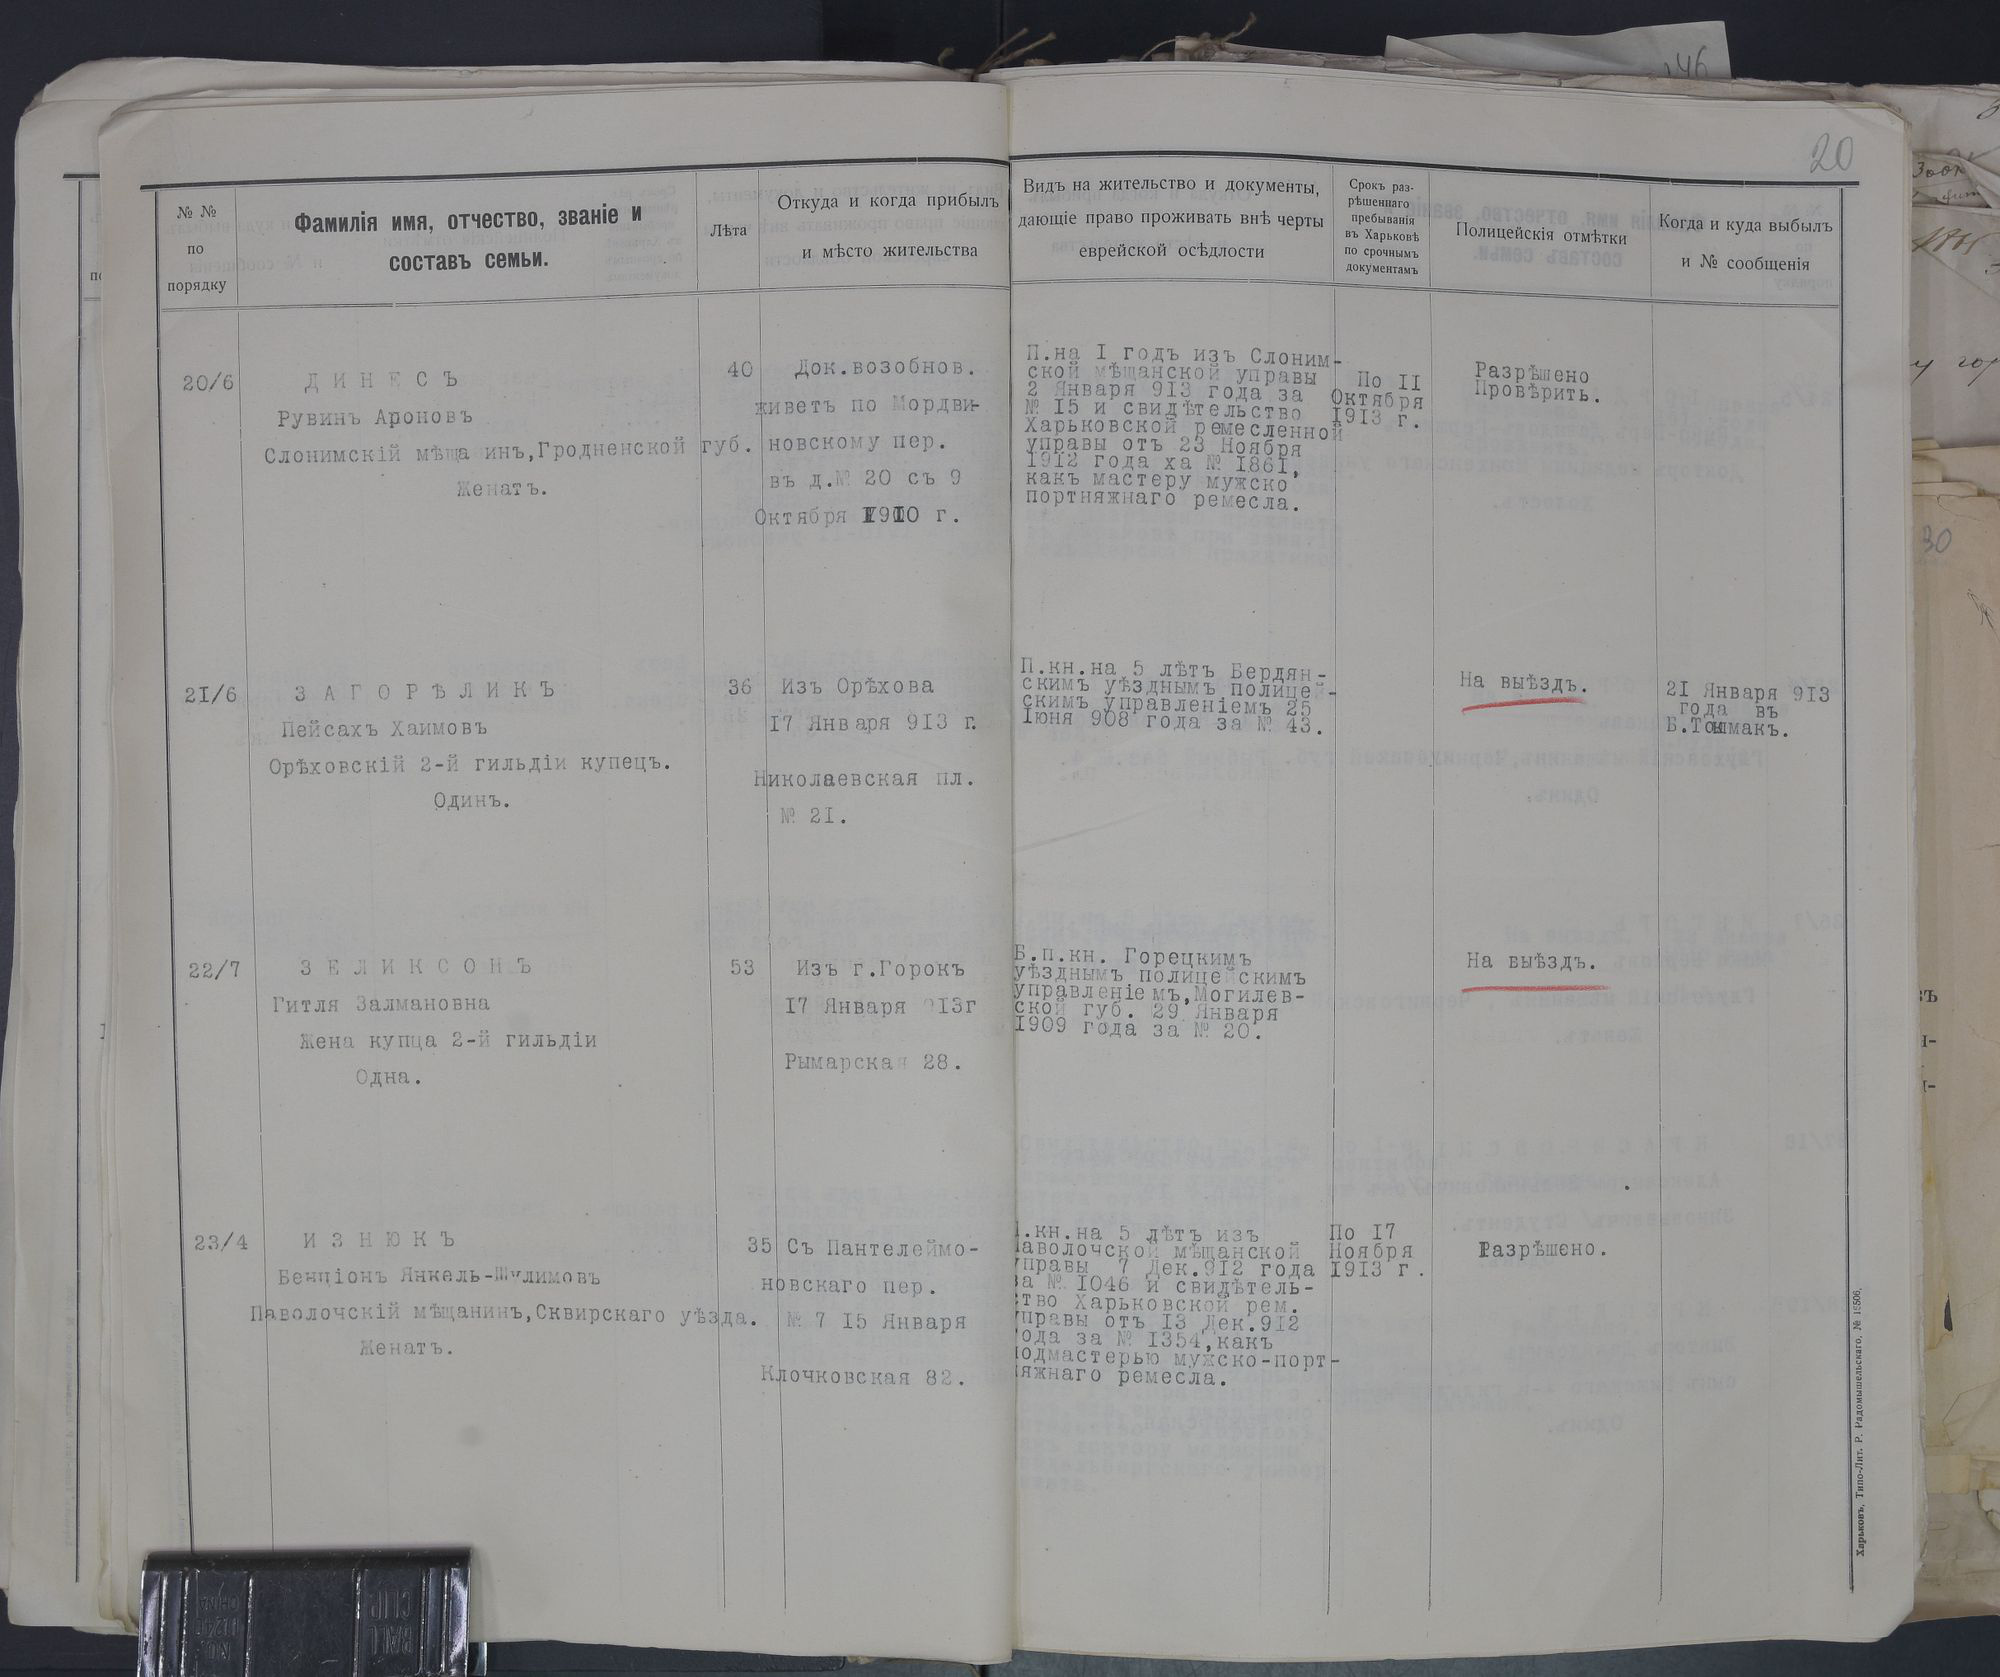 20
№ №
по
порядку
Фамилія имя, отчество, званіе и
составъ семьи.
Лѣта
Откуда и когда прибылъ
и мѣсто жительства
Видъ на жительство и документы,
дающіе право проживать внѣ черты
еврейской осѣдлости
Срокъ раз-
рѣшеннаго
пребыванія
въ Харьковѣ
по срочнымъ
документамъ
Полицейскія отмѣтки
Когда и куда выбылъ
и № сообщенія
20/6
ДИНЕСЪ
Рувинъ Ароновъ
Слонимскій мѣща инъ,Гродненской губ.
Женатъ.
40
Док.возобнов.
живетъ по Мордви-
новскому пер.
въ д.№ 20 съ 9
Октября I9I0 г.
П.на I годъ изъ Слоним-
ской мѣщанской управы
2 Января 9I3 года за
№ I5 и свидѣтельство
Харьковской ремесленной
управы отъ 23 Ноября
I9I2 года ха № I86I,
какъ мастеру мужско
портняжнаго ремесла.
По II
Октября
I9I3 г.
Разрѣшено
Провѣрить.
2I/6
ЗАГОРѢЛИКЪ
Пейсахъ Хаимовъ
Орѣховскій 2-й гильдіи купецъ.
Одинъ.
36
Изъ Орѣхова
I7 Января 9I3 г.
Николаевская пл.
№ 2I.
П.кн.на 5 лѣтъ Бердян-
скимъ уѣзднымъ полицей-
скимъ управленіемъ 25
Іюня 908 года за № 43.
На выѣздъ.
2I Января 9I3
года въ
Б.Токмакъ.
22/7
ЗЕЛИКСОНЪ
Гитля Залмановна
Жена купца 2-й гильдіи
Одна.
53
Изъ г.Горокъ
I7 Января 9I3г
Рымарская 28.
Б.п.кн. Горецкимъ
уѣзднымъ полицейскимъ
управленіемъ,Могилев-
ской губ. 29 Января
I909 года за № 20.
На выѣздъ.
23/4
ИЗНЮКЪ
Бенціонъ Янкель-Шулимовъ
Паволочскій мѣщанинъ,Сквирскаго уѣзда.
Женатъ.
35
Съ Пантелеймо-
новскаго пер.
№ 7 I5 Января
Клочковская 82.
П.кн.на 5 лѣтъ изъ
Паволочской мѣщанской
управы 7 Дек.9I2 года
за № I046 и свидѣтель-
ство Харьковской рем.
управы отъ I3 Дек.9I2
года за № I354,какъ
подмастерью мужско-порт-
няжнаго ремесла.
По I7
Ноября
I9I3 г.
Разрѣшено.
Харьковъ, Типо-Лит. Р. Радомышельскаго, №
146
30